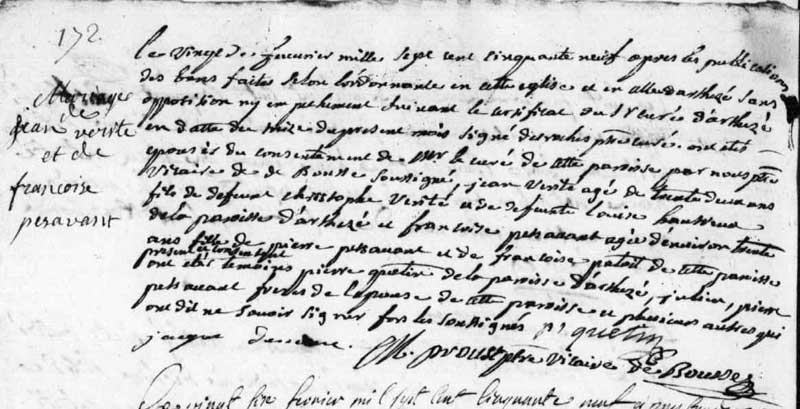 172
Mariage
de
jean verité
et de
francoise
pezavant
le vingt de feuvrier mille sept cent cinquante neuf apres les publications
des bans faites selon lordonnance en cette eglise et en celle darthezé sans
opposition ny empechement suivant le certificat du Sr curé d'arthezé
en datte du treize du present mois signé desroches ptre curé. ont etés
epousés du consentement de Mr le curé de cette paroisse par nous ptre
vicaire de de Bousse soussigné, jean verité agé de trente deux ans
fils de defunt christophe verité et de defunte louise
de la paroisse d'arthezé et francoise pezavant agée denviron trente
ans fille de pierre pezavant et de francoise de cette paroisse
present et consentant
ont etés temoins pierre quetin de la paroisse d'arthezé, julien, pierre
pezavant freres de lepouse de cette paroisse et plusieurs autres qui
ont dit ne savoir signer fors les soussignés p quetin
jacque
M. proust ptre vicaire de Bousse
Le vingt fevrier mil sept cent cinquante neuf